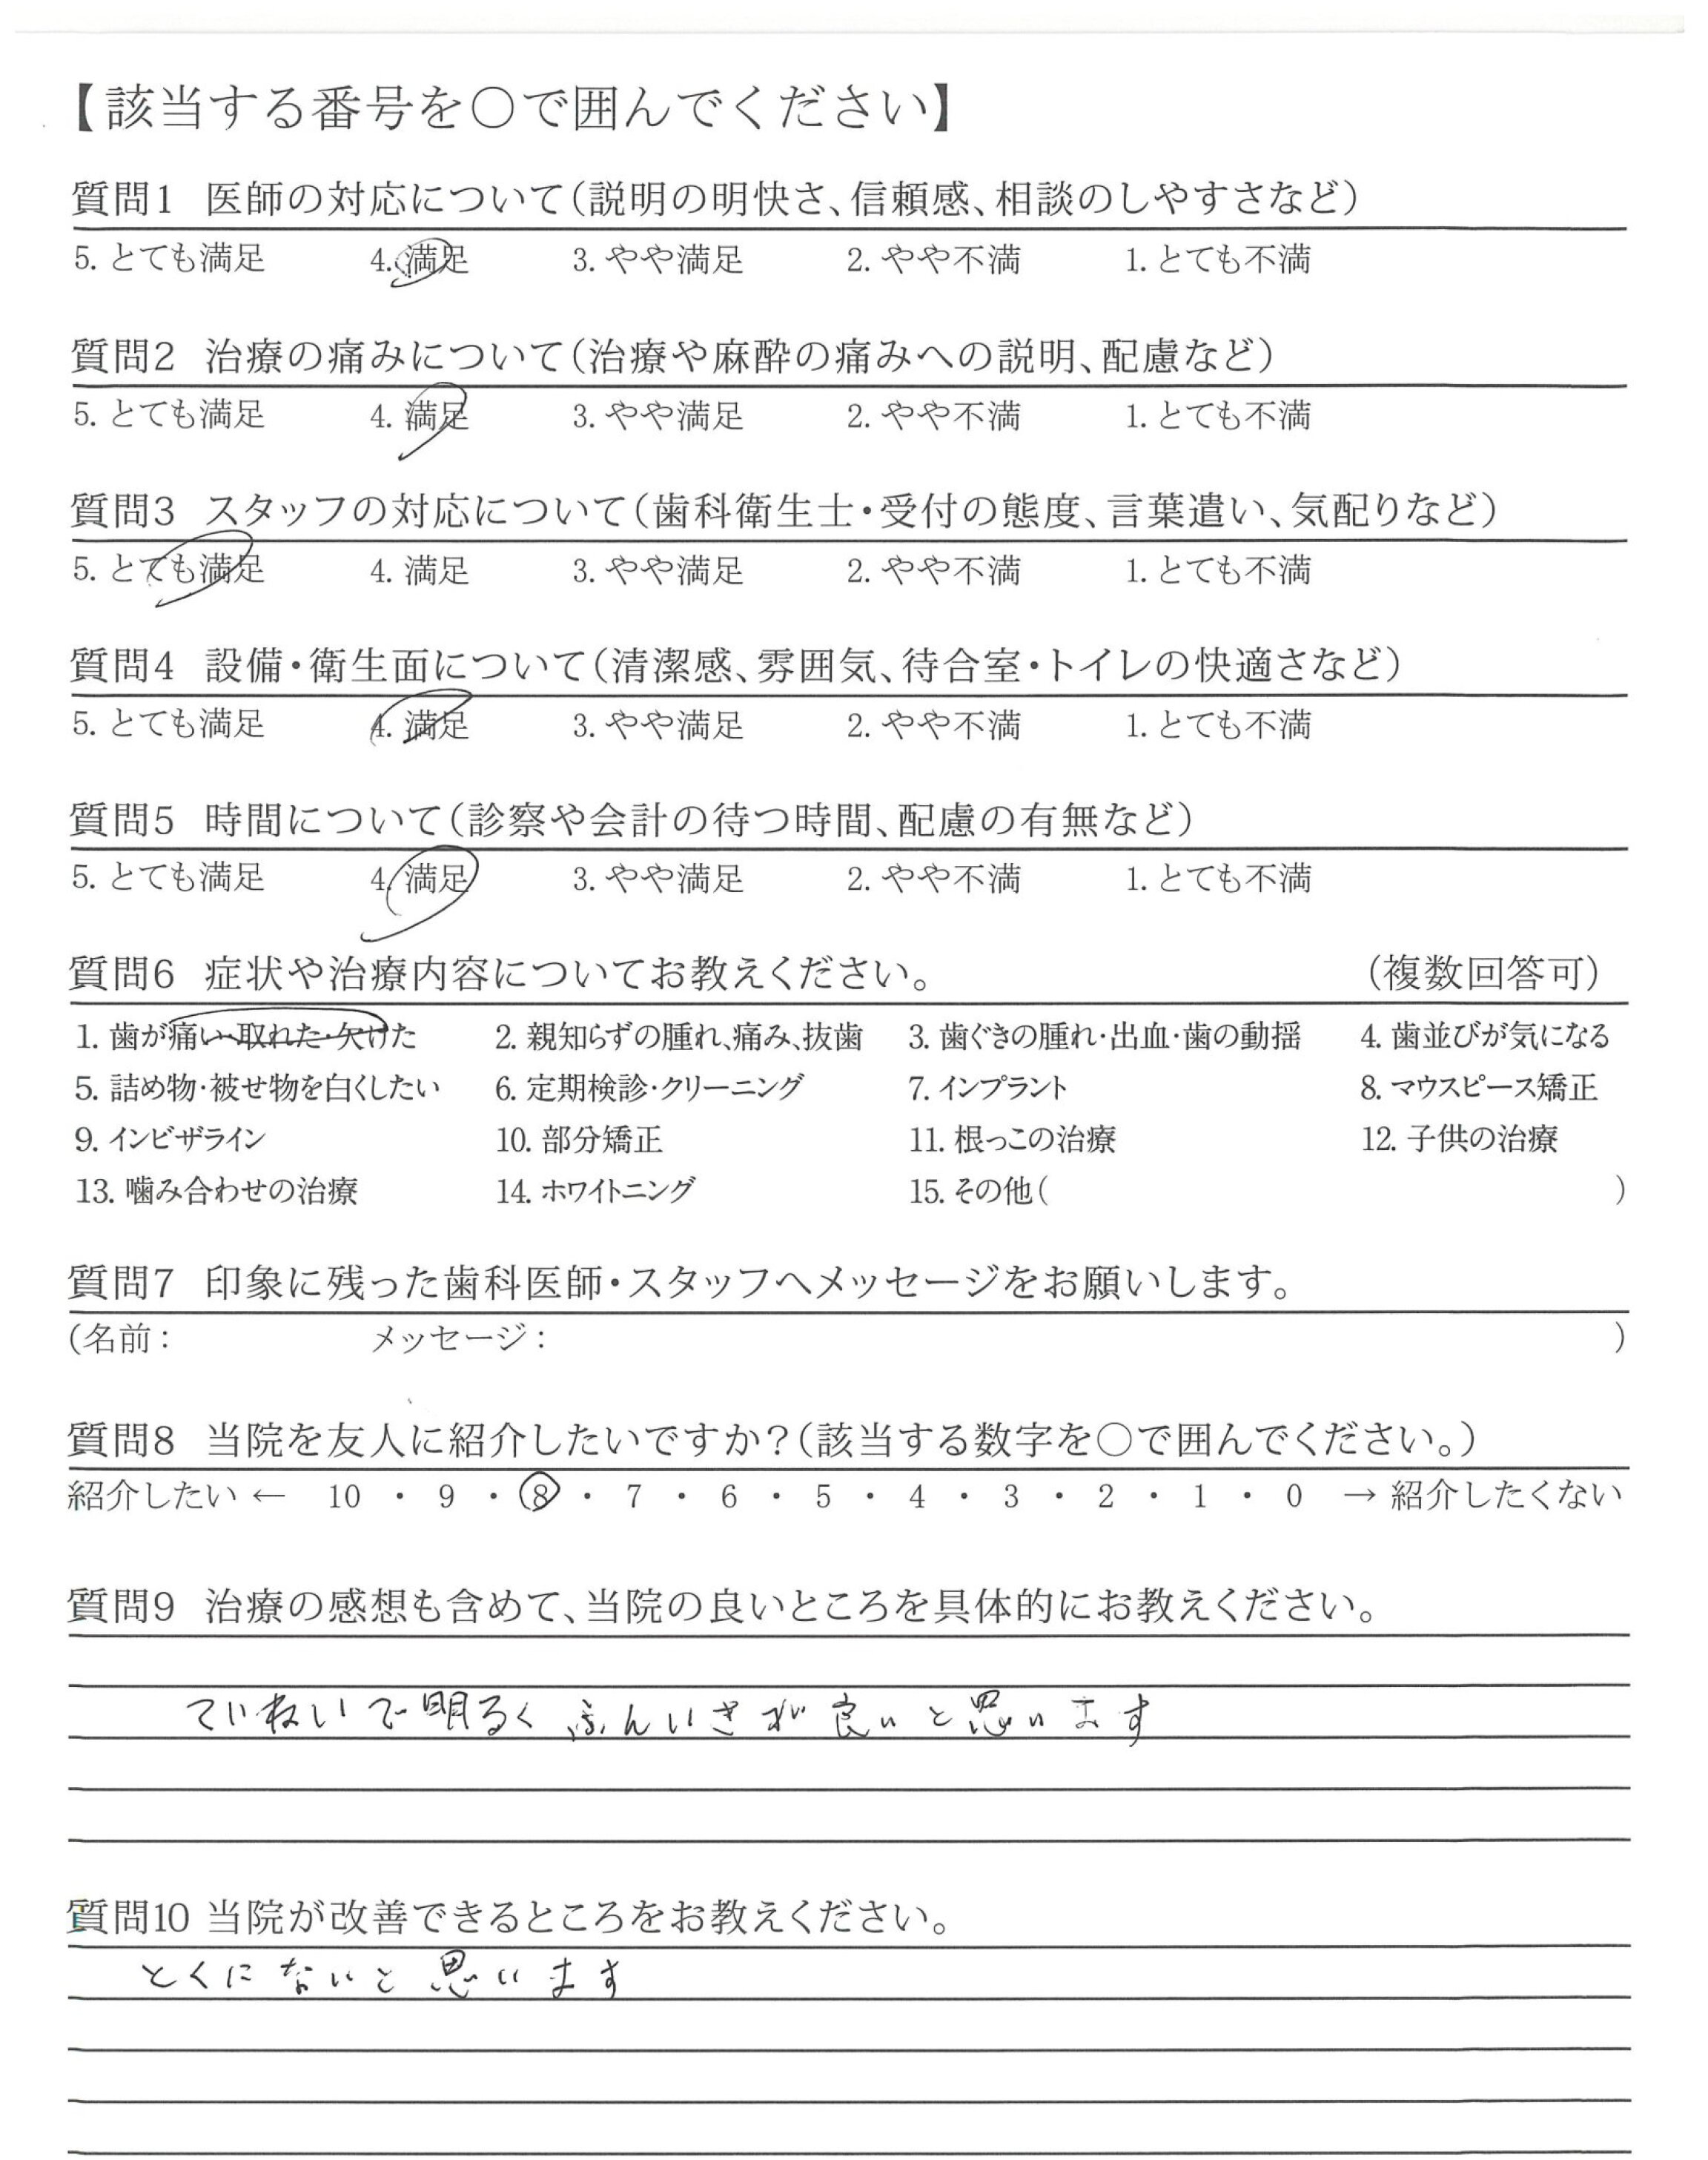 【該当する番号を○で囲んでください】
質問1 医師の対応について(説明の明快さ、信頼感、相談のしやすさなど)
5. とても満足 4. 満足 3. やや満足 2. やや不満 1. とても不満
質問2 治療の痛みについて(治療や麻酔の痛みへの説明、配慮など)
5. とても満足 4. 満足 3. やや満足 2. やや不満 1. とても不満
質問3 スタッフの対応について(歯科衛生士・受付の態度、言葉遣い、気配りなど)
5. とても満足 4. 満足 3. やや満足 2. やや不満 1. とても不満
質問4 設備・衛生面について(清潔感、雰囲気、待合室・トイレの快適さなど)
5. とても満足 4. 満足 3. やや満足 2. やや不満 1. とても不満
質問5 時間について(診察や会計の待つ時間、配慮の有無など)
5. とても満足 4. 満足 3. やや満足 2. やや不満 1. とても不満
質問6 症状や治療内容についてお教えください。 (複数回答可)
1. 歯が痛い・取れた・欠けた 2. 親知らずの腫れ、痛み、抜歯 3. 歯ぐきの腫れ・出血・歯の動揺 4. 歯並びが気になる
5. 詰め物・被せ物を白くしたい 6. 定期検診・クリーニング 7. インプラント 8. マウスピース矯正
9. インビザライン 10. 部分矯正 11. 根っこの治療 12. 子供の治療
13. 噛み合わせの治療 14. ホワイトニング 15. その他( )
質問7 印象に残った歯科医師・スタッフへメッセージをお願いします。
(名前: メッセージ: )
質問8 当院を友人に紹介したいですか?(該当する数字を○で囲んでください。)
紹介したい ← 10 ・ 9 ・ 8 ・ 7 ・ 6 ・ 5 ・ 4 ・ 3 ・ 2 ・ 1 ・ 0 → 紹介したくない
質問9 治療の感想も含めて、当院の良いところを具体的にお教えください。
ていねいで明るくふんいきが良いと思います
質問10 当院が改善できるところをお教えください。
とくにないと思います